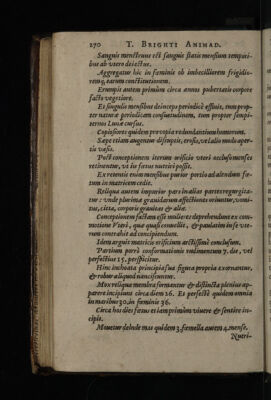 270 T. BRIGHTI ANIMAD.
Sanguis menstruus est sanguis statis mensium tempori-
bus ab vtero deiectus.
Aggregatur hic in fæminis ob imbecilliorem frigidio-
remq; earum constitutionem.
Erumpit autem primùm circa annos pubertatis corpore
facto vegetiore.
Et singulis mensibus deinceps periodicè effluit, tum prop-
ter naturæ periodicam consuetudinem, tum propter semp-
iternos Lunæ cursus.
Copiosiores quidem pro copia redundantium humorum.
Sæpe etiam augentur diserpsis, erosis, vel alio modo aper-
tis vasis.
Post conceptionem iterum orificio vteri occluso menses
retinentur, vt iis fœtus nutriri possit.
Ex retentis enim mensibus purior portio ad alendum fœ-
tum in matricem cedit.
Reliqua autem impurior pars in alias partes regurgita-
tur: vnde plurimæ grauidarum affectiones oriuntur, vomi-
tus, citta, corporis grauitas & aliæ.
Conceptionem factam esse mulieres deprehendunt ex com-
motione Vteri, qua quasi conuellit, & paulatim in se vte-
rum contrahit ad concipiendum.
Idem arguit matricis orificium arctissimè conclusum.
Partium porrò conformationis rudimentum 7. die, vel
perfectius 15. perspicitur.
Hinc inchoata principia sua figura propria exornantur,
& robur aliquod nanciscuntur.
Mox reliqua membra formantur & distincta plenius ap-
parere incipiunt circa diem 26. Et perfectè quidem omnia
in maribus 30. in fœminis 36.
Circa hos dies fœtus etiam primùm viuere & sentire in-
cipit.
Mouetur deinde mas quidem 3. fœmella autem 4. mense.
Nutri-